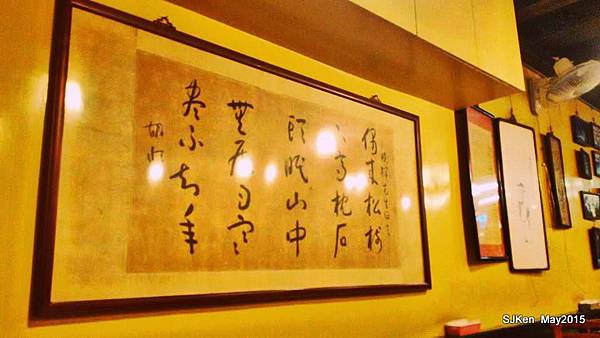 偶來松樹
下高枕石
頭眠山中
無曆日寒
盡不知年
SJKen May2015